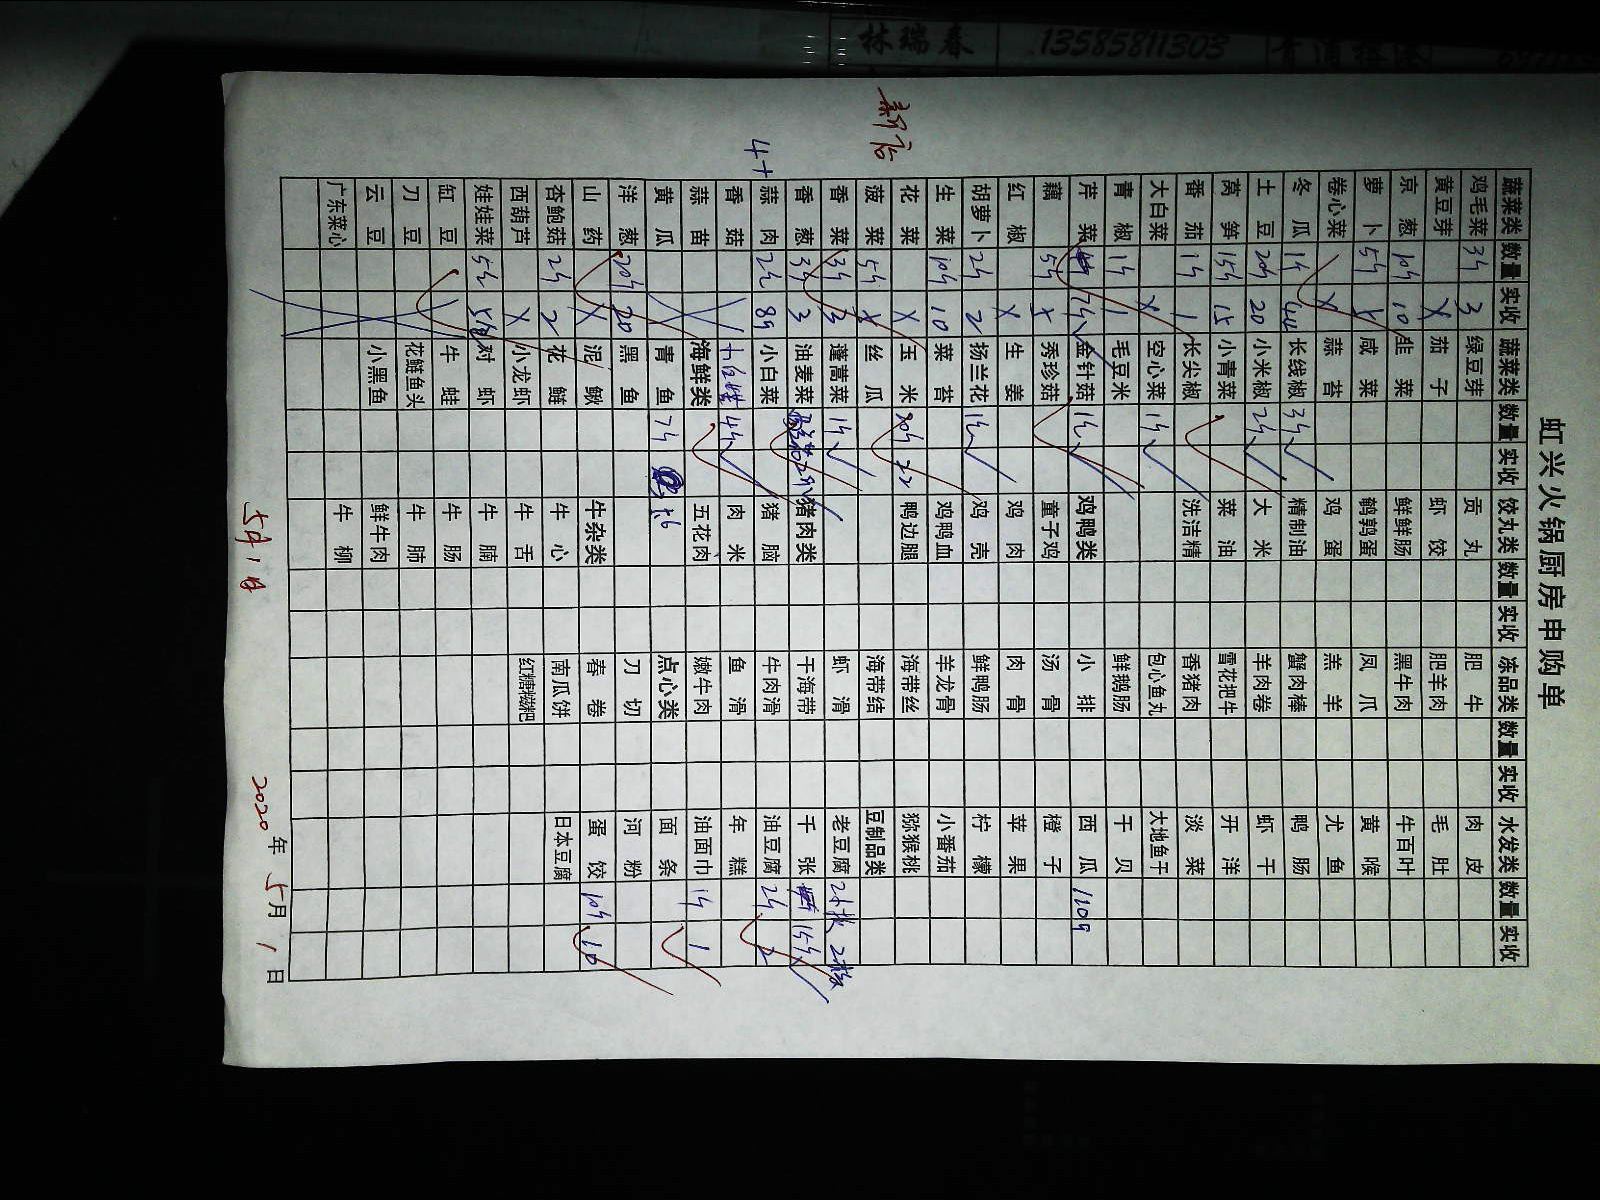 林瑞春 13585811303
新店
虹兴火锅厨房申购单
蔬菜类 数量 实收 蔬菜类 数量 实收 饺丸类 数量 实收 冻品类 数量 实收 水发类 数量 实收
鸡毛菜 3斤 3 绿豆芽 贡丸 肥牛 肉皮
黄豆芽 X 茄子 虾饺 肥羊肉 毛肚
京葱 10斤 10 韭菜 鲜鲜肠 黑牛肉 牛百叶
萝卜 5斤 咸菜 鹌鹑蛋 凤爪 黄喉
卷心菜 X 蒜苔 鸡蛋 羔羊 尤鱼
冬瓜 1斤 长线椒 3斤 精制油 蟹肉棒 鸭肠
土豆 20斤 20 小米椒 2斤 大米 羊肉卷 虾干
莴笋 15斤 15 小青菜 菜油 雪花把牛 开洋
番茄 1斤 1 长尖椒 洗洁精 香猪肉 淡菜
大白菜 X 空心菜 1斤 包心鱼丸 大地鱼干
青椒 1斤 1 毛豆米 鲜鹅肠 干贝
芹菜 7斤 金针菇 1斤 鸡鸭类 小排 西瓜 110斤
藕 5斤 X 秀珍菇 童子鸡 汤骨 橙子
红椒 X 生姜 鸡肉 肉骨 苹果
胡萝卜 2斤 2 扬兰花 1斤 鸡壳 鲜鸭肠 柠檬
生菜 10斤 10 菜苔 鸡鸭血 羊龙骨 小番茄
花菜 X 玉米 20斤 22 鸭边腿 海带丝 猕猴桃
菠菜 5斤 X 丝瓜 海带结 豆制品类
香菜 3斤 3 蓬蒿菜 1斤 虾滑 老豆腐 2板 2板
香葱 3斤 3 油麦菜 猪肉类 干海带 千张 15斤
蒜肉 2斤 小白菜 猪脑 牛肉滑 油豆腐 2斤 2
香菇 4斤 肉米 鱼滑 年糕
蒜苗 海鲜类 五花肉 嫩牛肉 油面巾 1斤 1
黄瓜 青鱼 7斤 点心类 面条
洋葱 20斤 20 黑鱼 刀切 河粉
山药 X 泥鳅 牛杂类 春卷 蛋饺 10斤 10
杏鲍菇 2斤 2 花鲢 牛心 南瓜饼 日本豆腐
西葫芦 X 小龙虾 牛舌 红糖糍粑
娃娃菜 5斤 对虾 牛腩
缸豆 牛蛙 牛肠
刀豆 花鲢鱼头 牛肺
云豆 小黑鱼 鲜牛肉
广东菜心 牛柳
5月1日
2020年 5月 1日